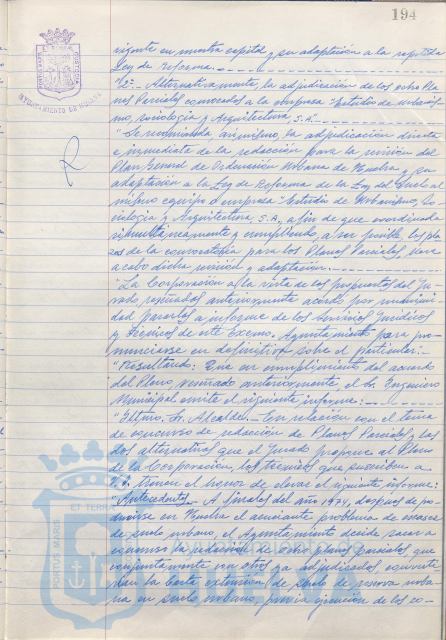 194
vigente en nuestra capital y su adaptación a la repetida
Ley de Reforma.
"2º.- Alternativamente, la adjudicación de los ocho Pla
nes Parciales convocados a la empresa "Estudios de Urbanis
mo, Sociología y Arquitectura, S.A."
"Se recomienda asimismo, la adjudicación directa
e inmediata de la redacción para la revisión del
Plan General de Ordenación Urbana de Huelva y su
adaptación a la Ley de Reforma de la Ley del Suelo al
mismo equipo o empresa "Estudio de Urbanismo, So
ciología y Arquitectura S.A., a fin de que coordinada
simultáneamente y cumpliendo, a ser posible, los pla
zos de la convocatoria para los Planes Parciales, lleve
a cabo dicha revisión y adaptación.
"La Corporación a la vista de las propuestas del Ju
rado, reseñadas anteriormente acordó por unanimi
dad pasarlos a informe de los Servicios Jurídicos
y Técnicos de este Excmo. Ayuntamiento para pro
nunciarse en definitiva sobre el particular.
"Resultando: Que en cumplimiento del acuerdo
del Pleno, reseñado anteriormente el Sr. Ingeniero
Municipal emite el siguiente informe:
"Iltmo. Sr. Alcalde.- En relación con el tema
de concurso de redacción de Planes Parciales y las
dos alternativas que el Jurado propone al Pleno
de la Corporación, los técnicos que suscriben a
V.I. tienen el honor de elevar el siguiente informe:
"Antecedentes.- A finales del año 1974, después de pro
ducirse en Huelva el acuciante problema de escasez
de suelo urbano, el Ayuntamiento decide sacar a
concurso la redacción de ocho planes parciales que
conjuntamente con otros ya adjudicados convertían
la extensión de suelo de reserva urba
na en suelo urbano, previa ejecución de los co-
AYUNTAMIENTO DE HUELVA
PORTUS MARIS
ET TERRAE